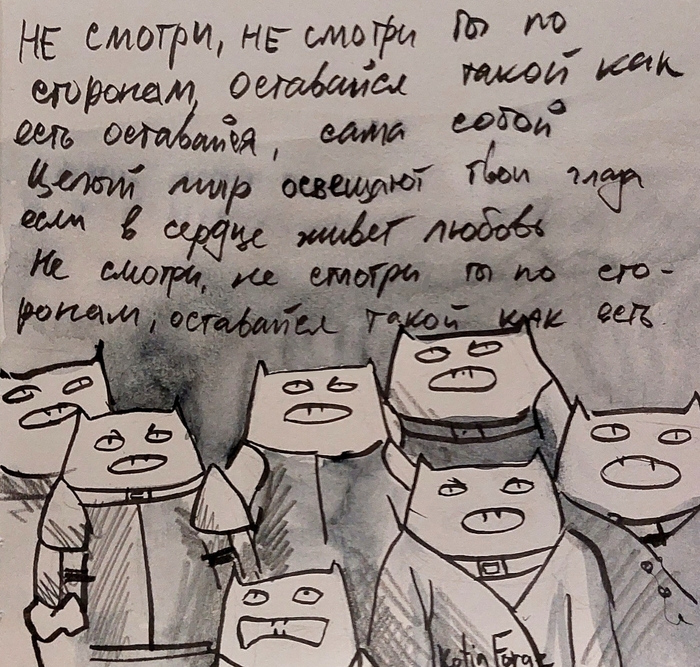 НЕ СМОТРИ, НЕ СМОТРИ ТЫ ПО
сторонам, оставайся такой как
есть оставайся, сама собой
Целый мир освещают твои глаза
если в сердце живет любовь
Не смотри, не смотри ты по сто-
ронам, оставайся такой как есть
Katia Faraz